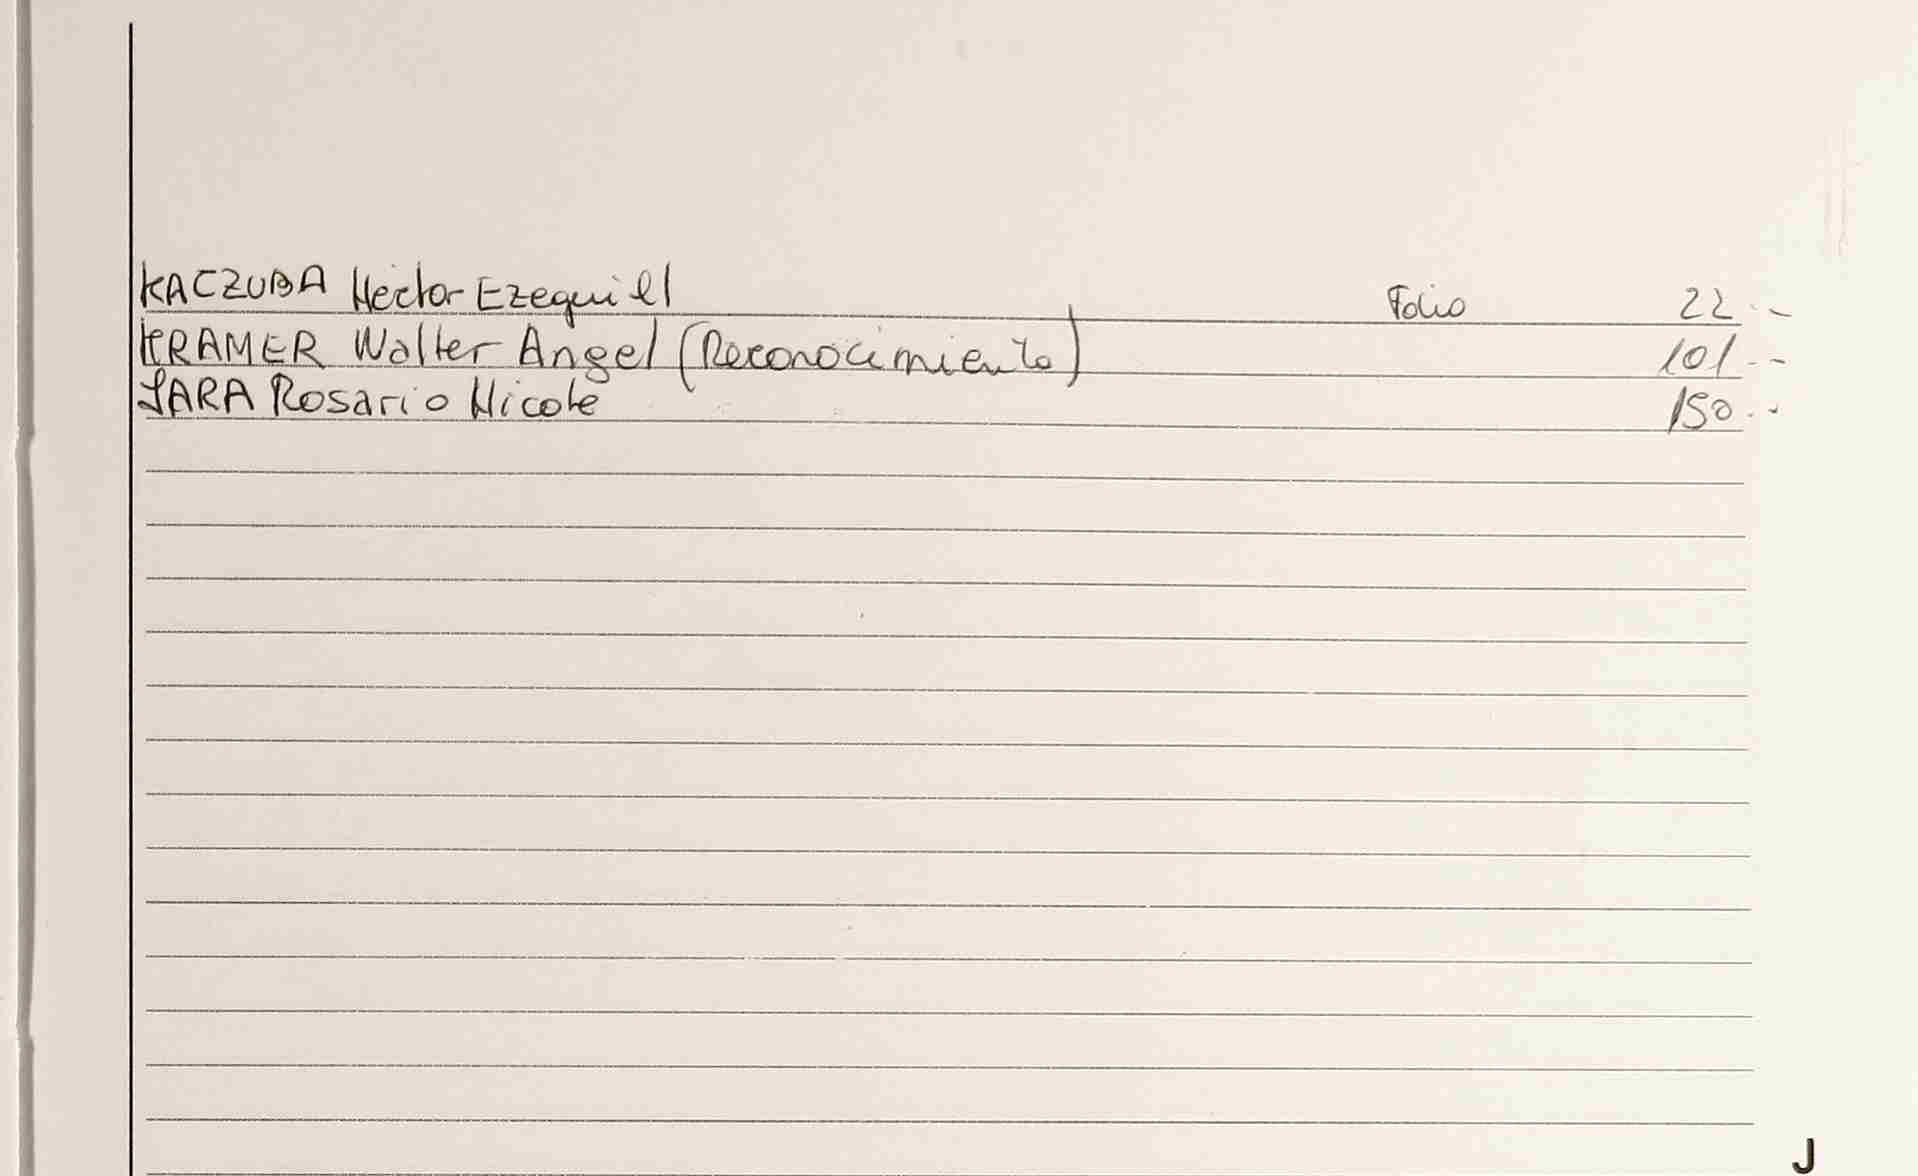 KACZUBA Hector Ezequiel Folio 22.-
KRAMER Walter Angel (Reconocimiento) 101.-
JARA Rosario Nicole 150.-
J